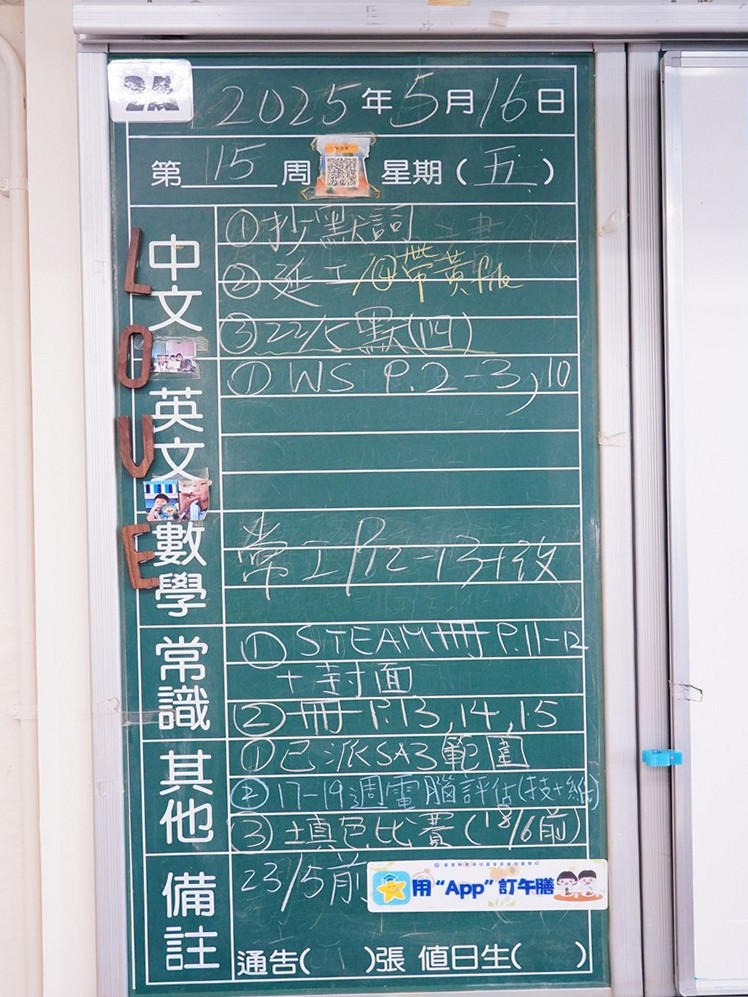 2A
2025年5月16日
第 15 周 星期(五)
中文
①抄默詞
②延工/④帶黃file
③22/5默(四)
LOVE
英文
① WS P.2-3,10
數學
常工P12-13+改
常識
① STEAM冊 P.11-12
+封面
②冊P.13,14,15
其他
①已派SA3範圍
②17-19週電腦評估(技+紙)
③填色比賽(18/6前)
備註
23/5前
用“App”訂午膳
通告( )張 值日生( )